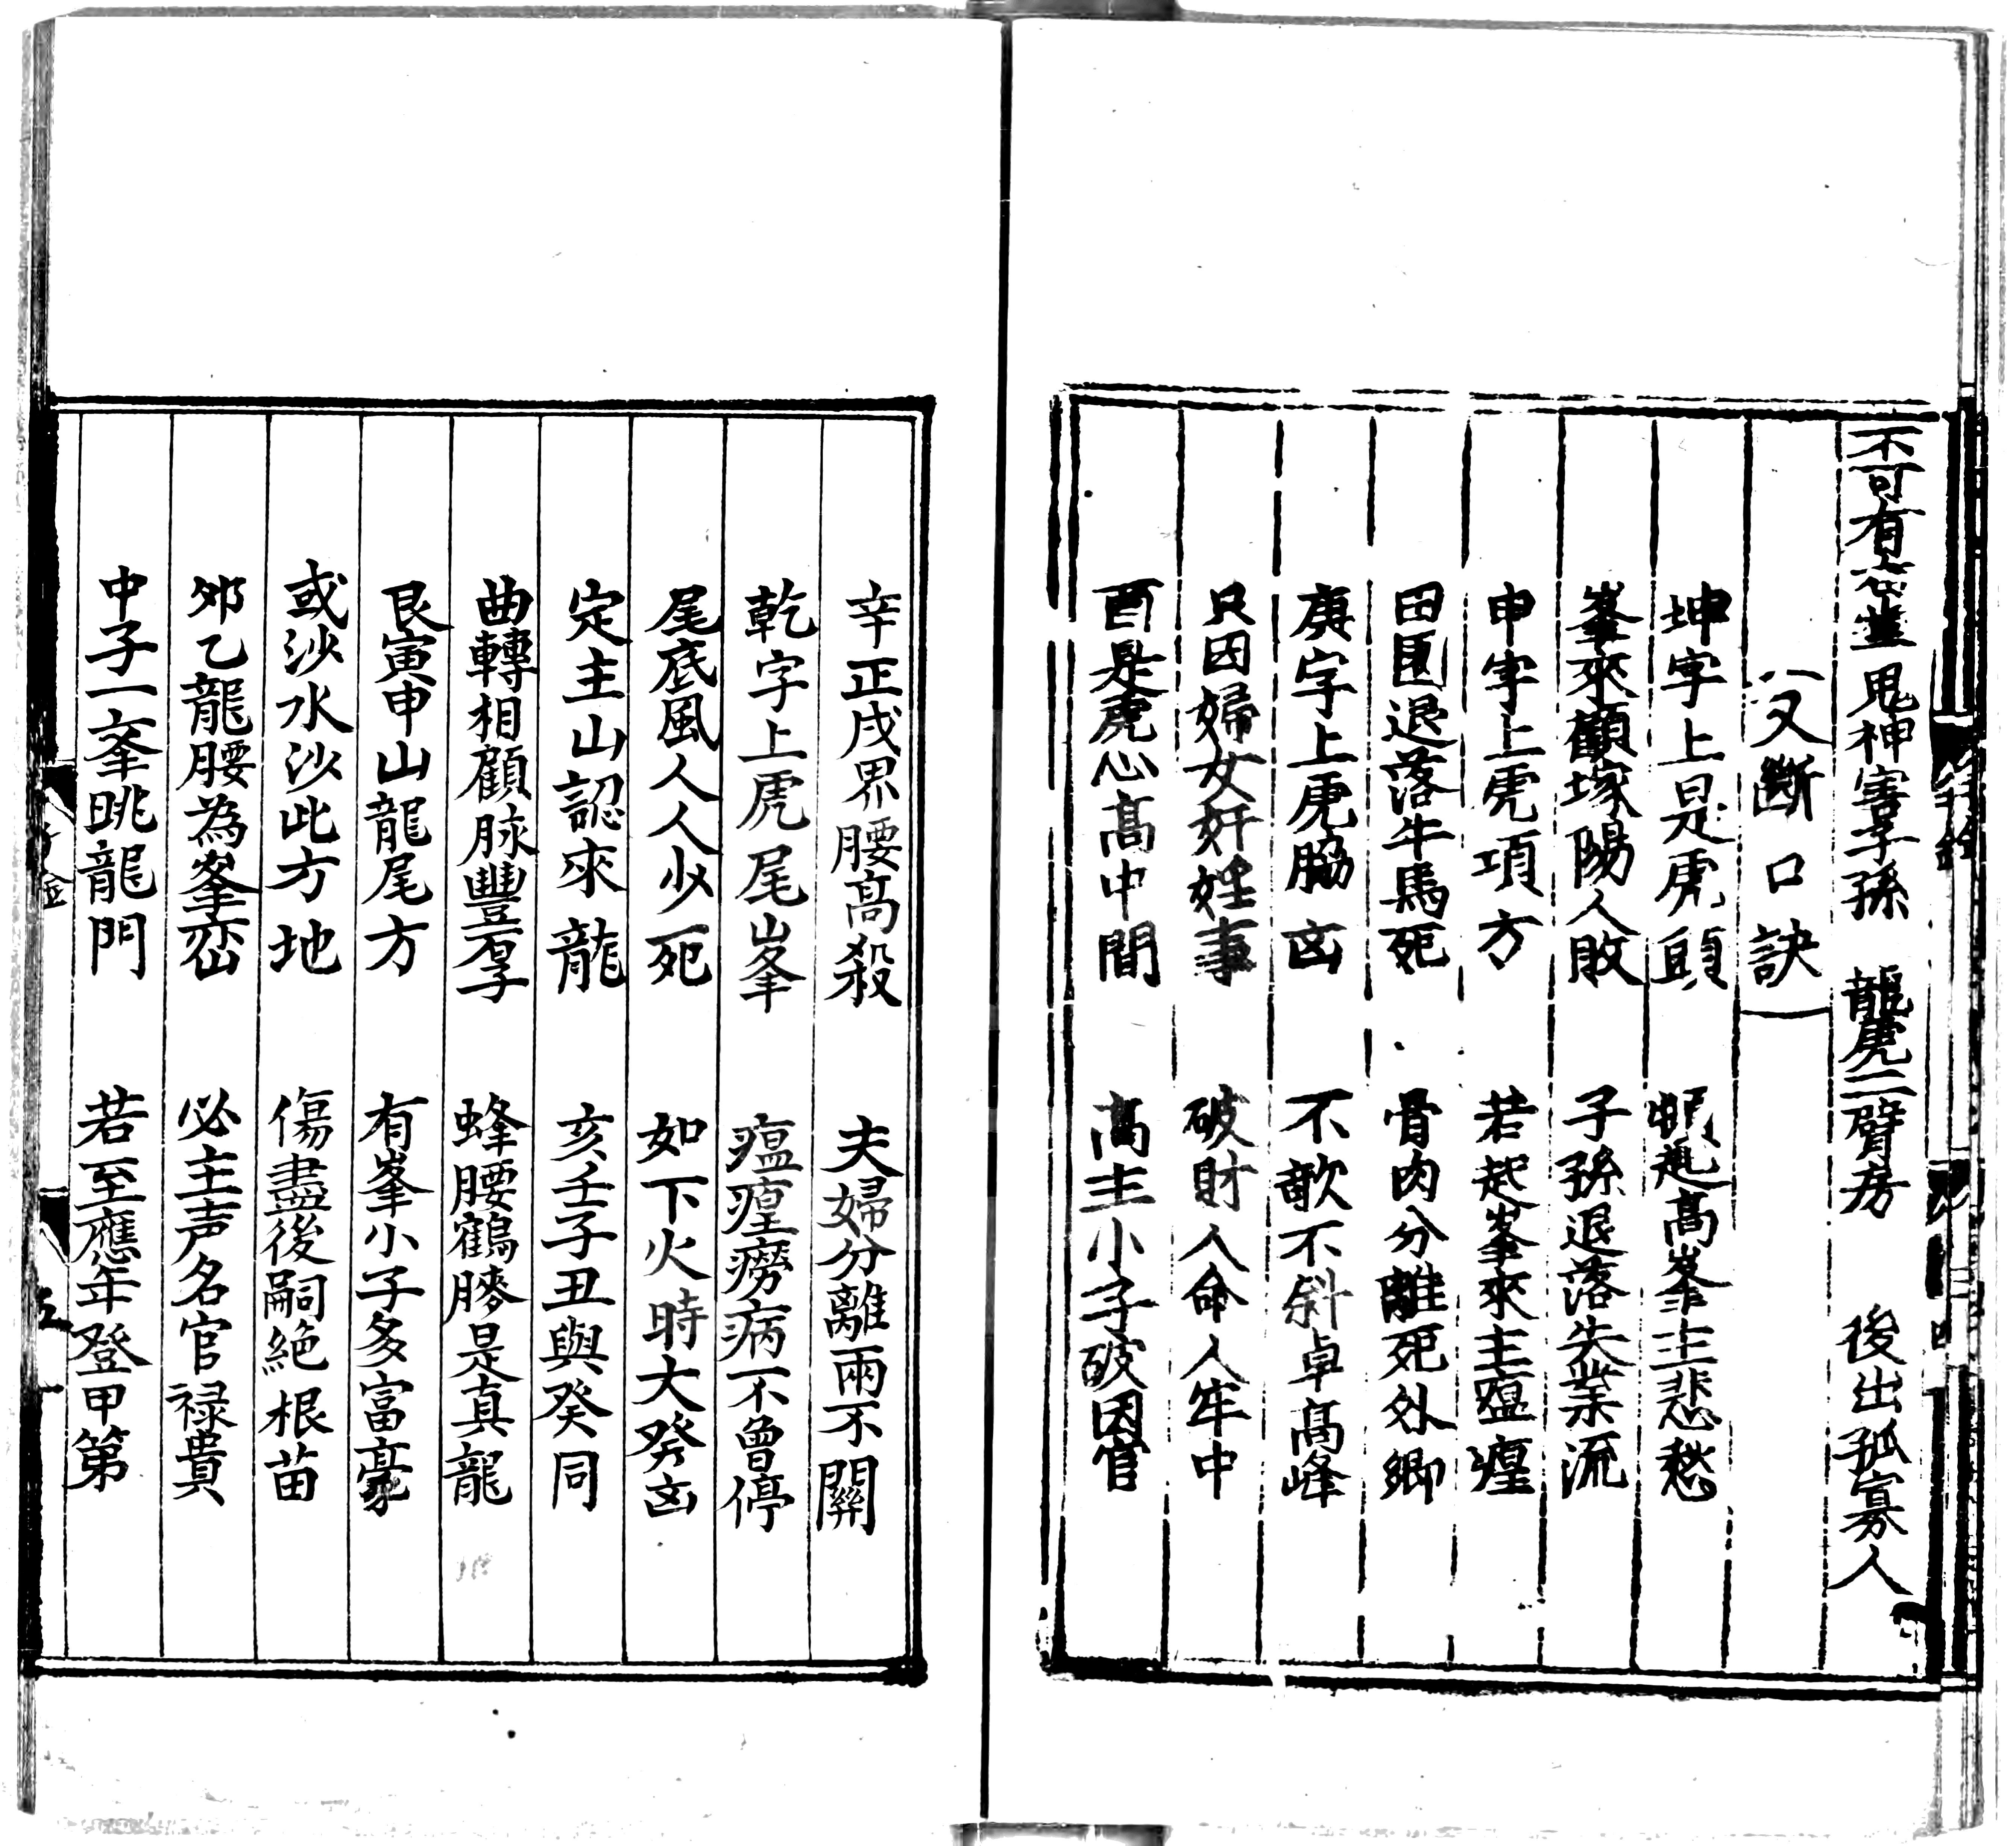 不可有　鬼神害子孫　龍虎二臂房　後出孤寡人
又斷口訣
坤字上是虎頭　起高峯主悲愁
峯來顧塚陽人敗　子孫退落失業流
申字上虎項方　若起峯來主瘟㾮
田園退落牛馬死　骨肉分離死外鄉
庚字上虎脇凶　不欹不斜卓高峰
只因婦女奸婬事　破財人命人牢中
酉是虎心高中間　高主小子破因官
辛正戌界腰高殺　夫婦分離兩不關
乾字上虎尾峯　瘟㾮癆病不曾停
尾底風人人少死　如下火時大發凶
定主山認來龍　亥壬子丑與癸同
曲轉相顧脉豐厚　蜂腰鶴膝是真龍
艮寅申山龍尾方　有峯小子多富豪
或沙水沙此方地　傷盡後嗣絕根苗
夘乙龍腰為峯巒　必主声名官禄貴
中子一峯眺龍門　若至應年登甲第